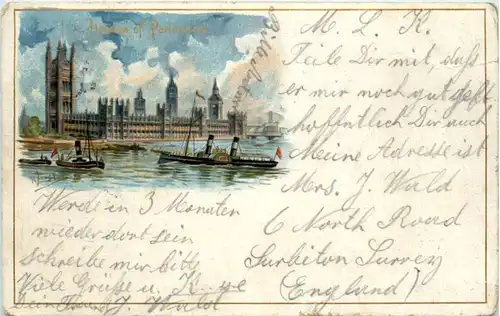 Houses of Parliament
M. L. K.
Teile Dir mit, daß
er mir noch gut
hoffentlich Dir auch
Meine Adresse ist
Mrs. J. Wald
6 North Road
Surbiton Surrey
(England)
Werde in 3 Monaten
wieder dort sein
Schreibe mir bitte
Viele Grüße u. K.
Dein J. Wald